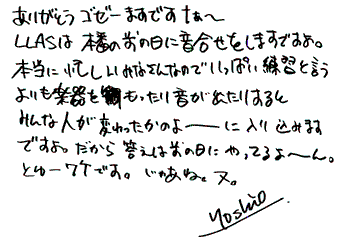 ありがとうゴゼーますですなぁ〜
LLASは本番の前の日に音合せをしますですよ。
本当に忙しいみなさんなのでいっぱい練習と言う
よりも楽器をもったり音が出たりすると
みんな人が変わったかのよーーに入り込みます
ですよ。だから答えは前の日にやってるよ〜ん。
とゆーワケです。じゃあね。又。
Yoshio